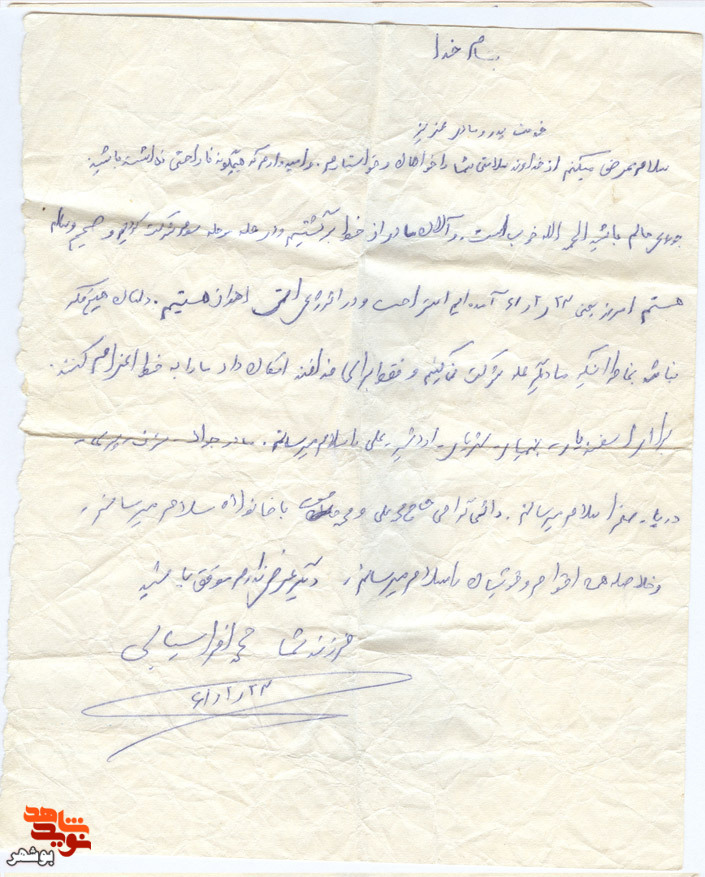 بنام خدا
خدمت پدر و مادر عزیز
سلام عرض میکنم از خداوند سلامتی شما را خواهان و خواستارم. و امیدوارم که هیچگونه ناراحتی نداشته باشید.
جویای حالم باشید الحمد الله خوب است. و الان ما در از خط برگشتیم و در حمله مرحله سوم شرکت کردیم و صحیح و سالم
هستم امروز یعنی ۲۳ ر ۲ ر ۶۱ آمده ایم استراحت و در انرژی اتمی اهواز هستیم. دلتان هیچ تنگ
نباشد بخاطر اینکه ما دیگر حمله شرکت نمی کنیم و فقط برای پدافند امکان داد ما را به خط اعزام کنند.
برادر اسفندیار - بهمیار - شهریار - اردشیر - علی را سلام میرسانم. مادر جواد
دریا - صغرا سلام میرسانم. دائی گرامی حاج محمد علی و محمد حسن با خانواده سلام میرسانم.
و خلاصه همه اقوام و خویشان را سلام میرسانم. دیگر عرضی ندارم موفق باشید
فرزند شما محمد افراسیابی
۲۳ ر ۲ ر ۶۱
نوید شاهد
بوشهر